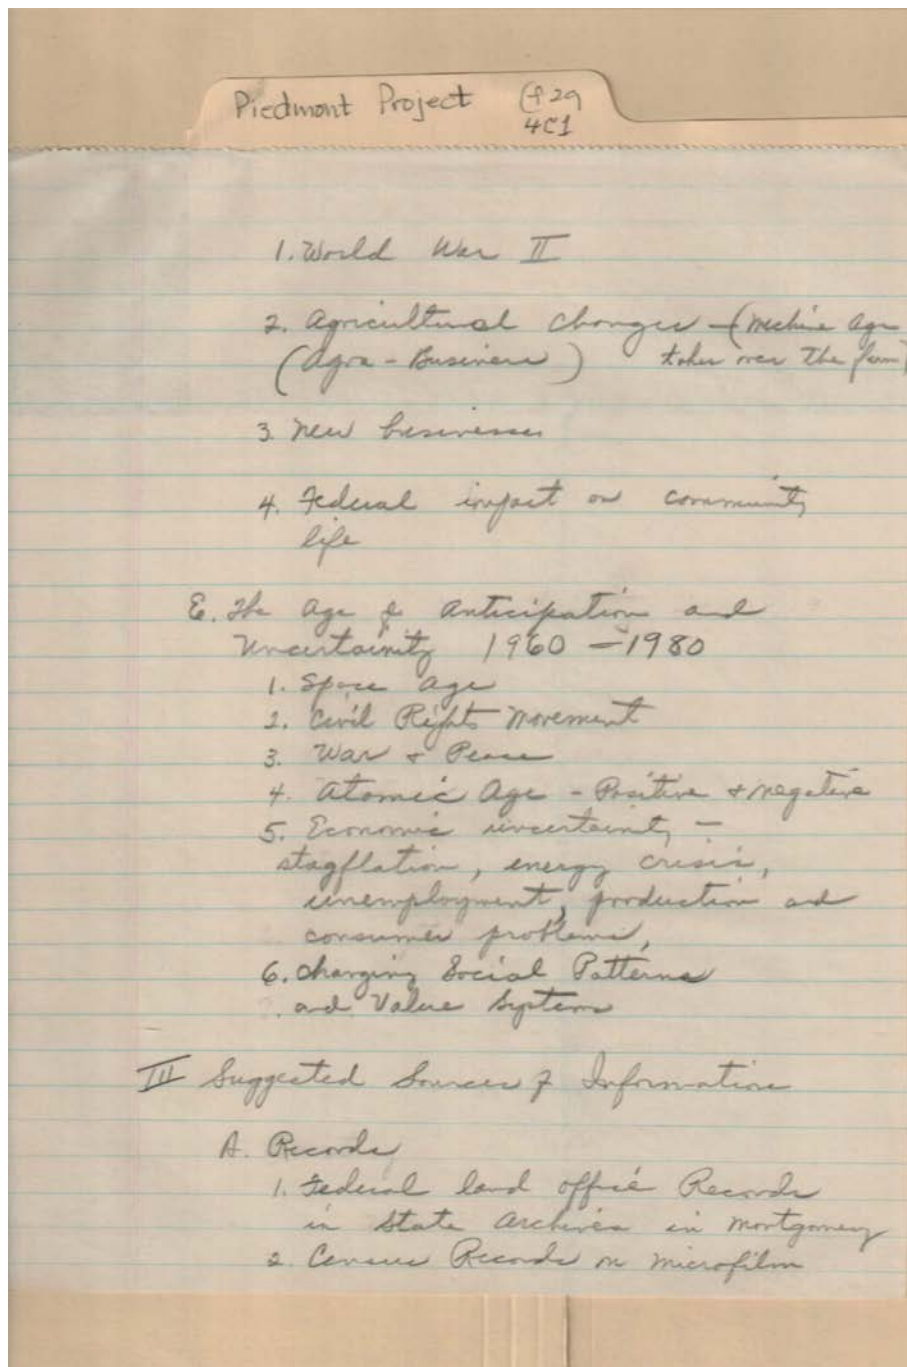 Piedmont Project (f 29
4C1
1. World War II
2. Agricultural changes - (Machine Age
(Agra-Business) takes over the farm)
3. New businesses
4. Federal impact on community
life
E. The Age of Anticipation and
Uncertainity 1960 - 1980
1. Space Age
2. Civil Rights Movement
3. War & Peace
4. Atomic Age - Positive & negative
5. Economic uncertainity -
stagflation, energy crisis,
unemployment, production and
consumer problems,
6. Changing Social Patterns
and Value Systems
III Suggested Sources of Information
A. Records
1. Federal land office Records
in State Archives in Montgomery
2. Census Records on microfilm